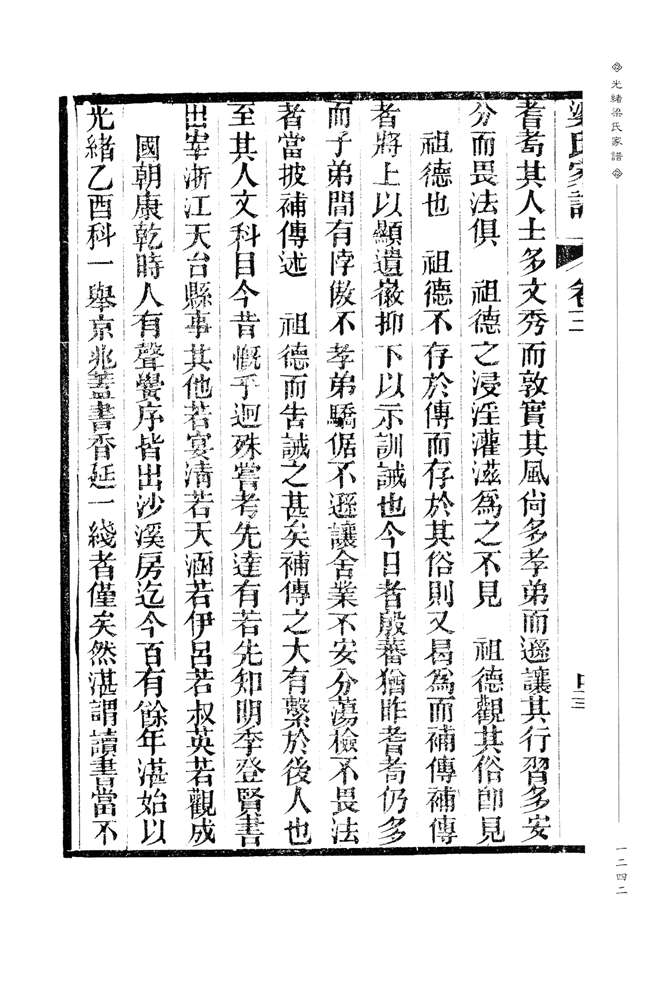 光緒梁氏家譜
一二四二
梁氏家譜 卷三
耆耇其人士多文秀而敦實其風尙多孝弟而遜讓其行習多安
分而畏法俱 祖德之浸淫灌滋爲之不見 祖德觀其俗卽見
祖德也 祖德不存於傳而存於其俗則又曷爲而補傳補傳
者將上以顯遺徽抑下以示訓誡也今日者殷蕃猶昨耆耇仍多
而子弟間有悖傲不孝弟驕倨不遜讓舍業不安分蕩檢不畏法
者當披補傳述 祖德而告誡之甚矣補傳之大有繫於後人也
至其人文科目今昔慨乎迥殊嘗考先達有若先知明季登賢書
出宰浙江天台縣事其他若宴清若天涵若伊呂若叔英若觀成
國朝康乾時人有聲黌序皆出沙溪房迄今百有餘年湛始以
光緒乙酉科一舉京兆蓋書香延一綫者僅矣然湛謂讀書當不